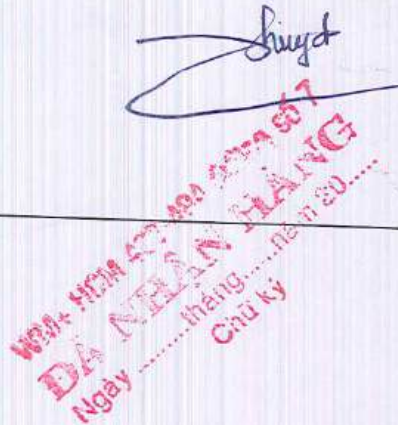 WM+ HCM SỐ 7
ĐÃ NHẬN HÀNG
Ngày ........tháng.....năm 20.....
Chữ ký